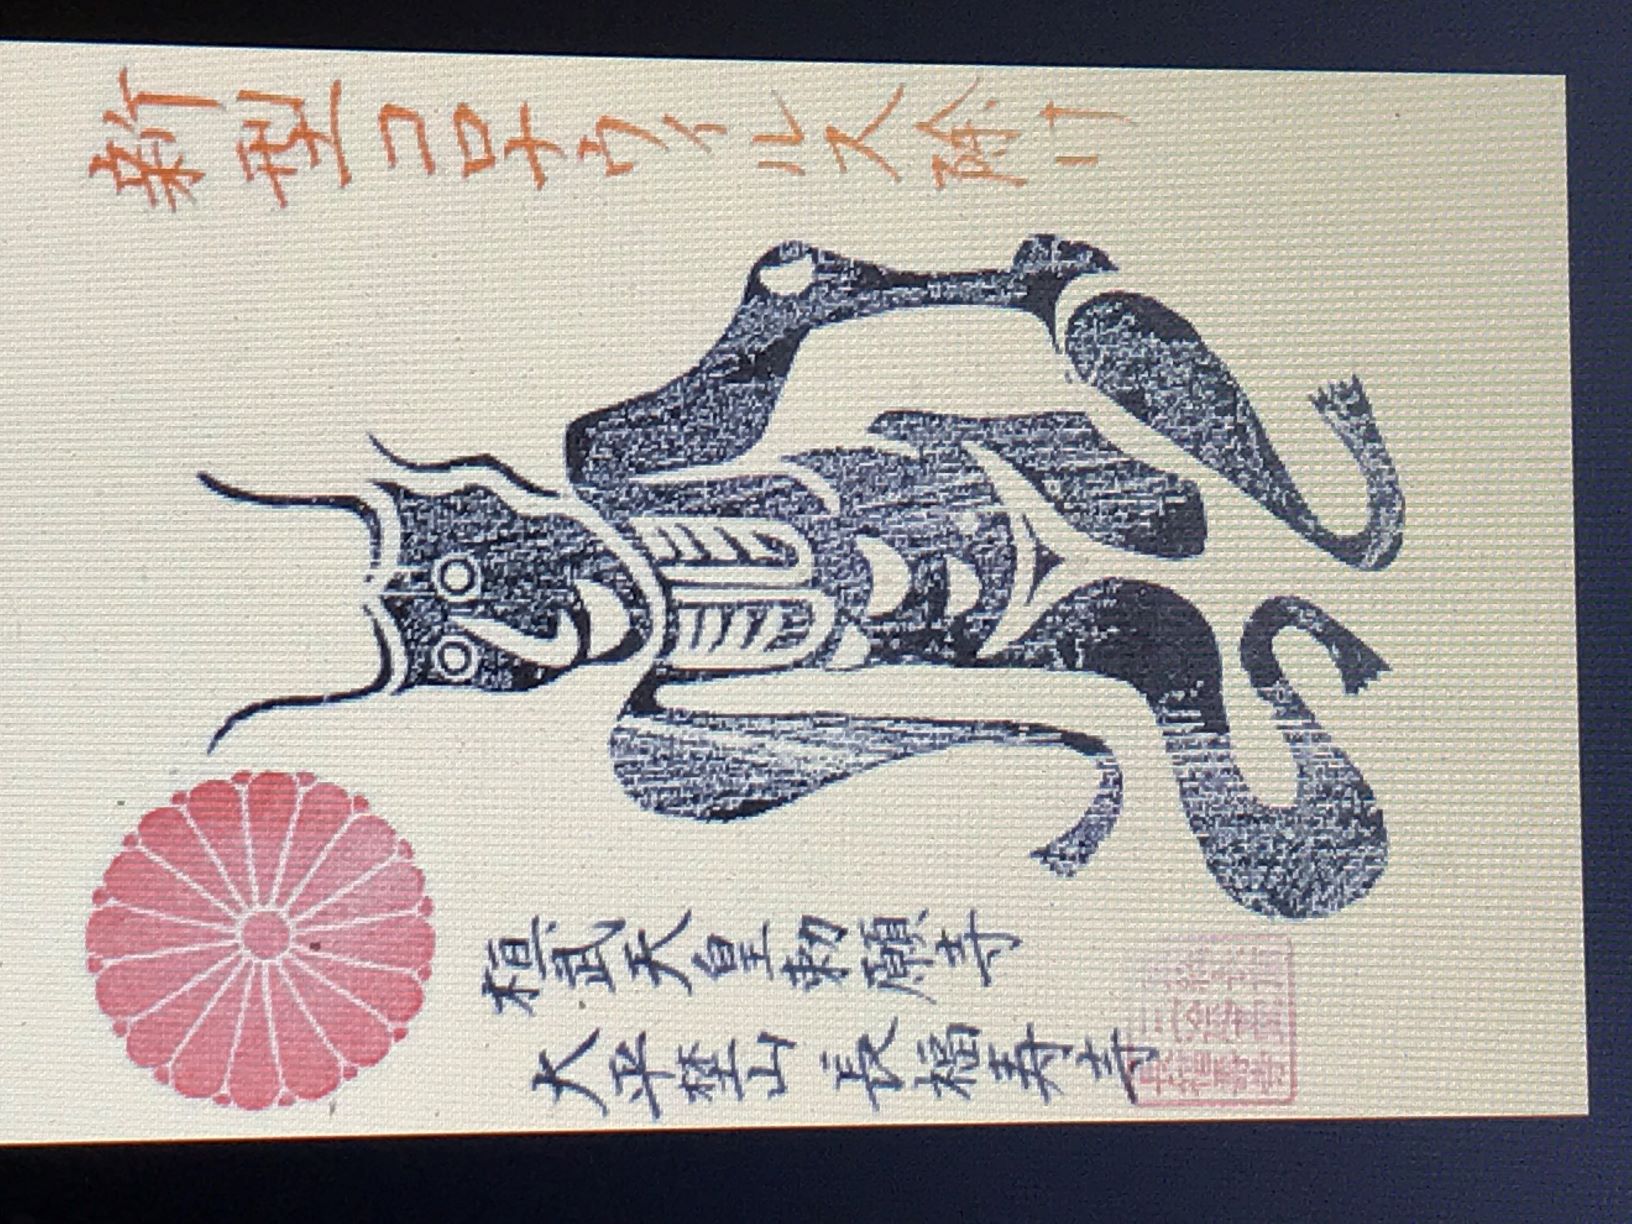 新型コロナウイルス除け
桓武天皇勅願寺
太平埜山 長福寿寺